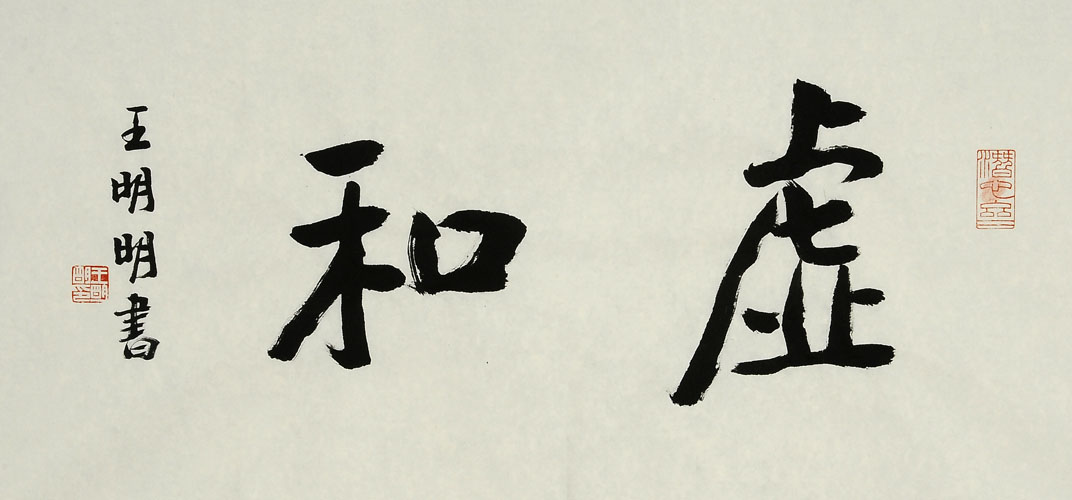 虚和
王明明書